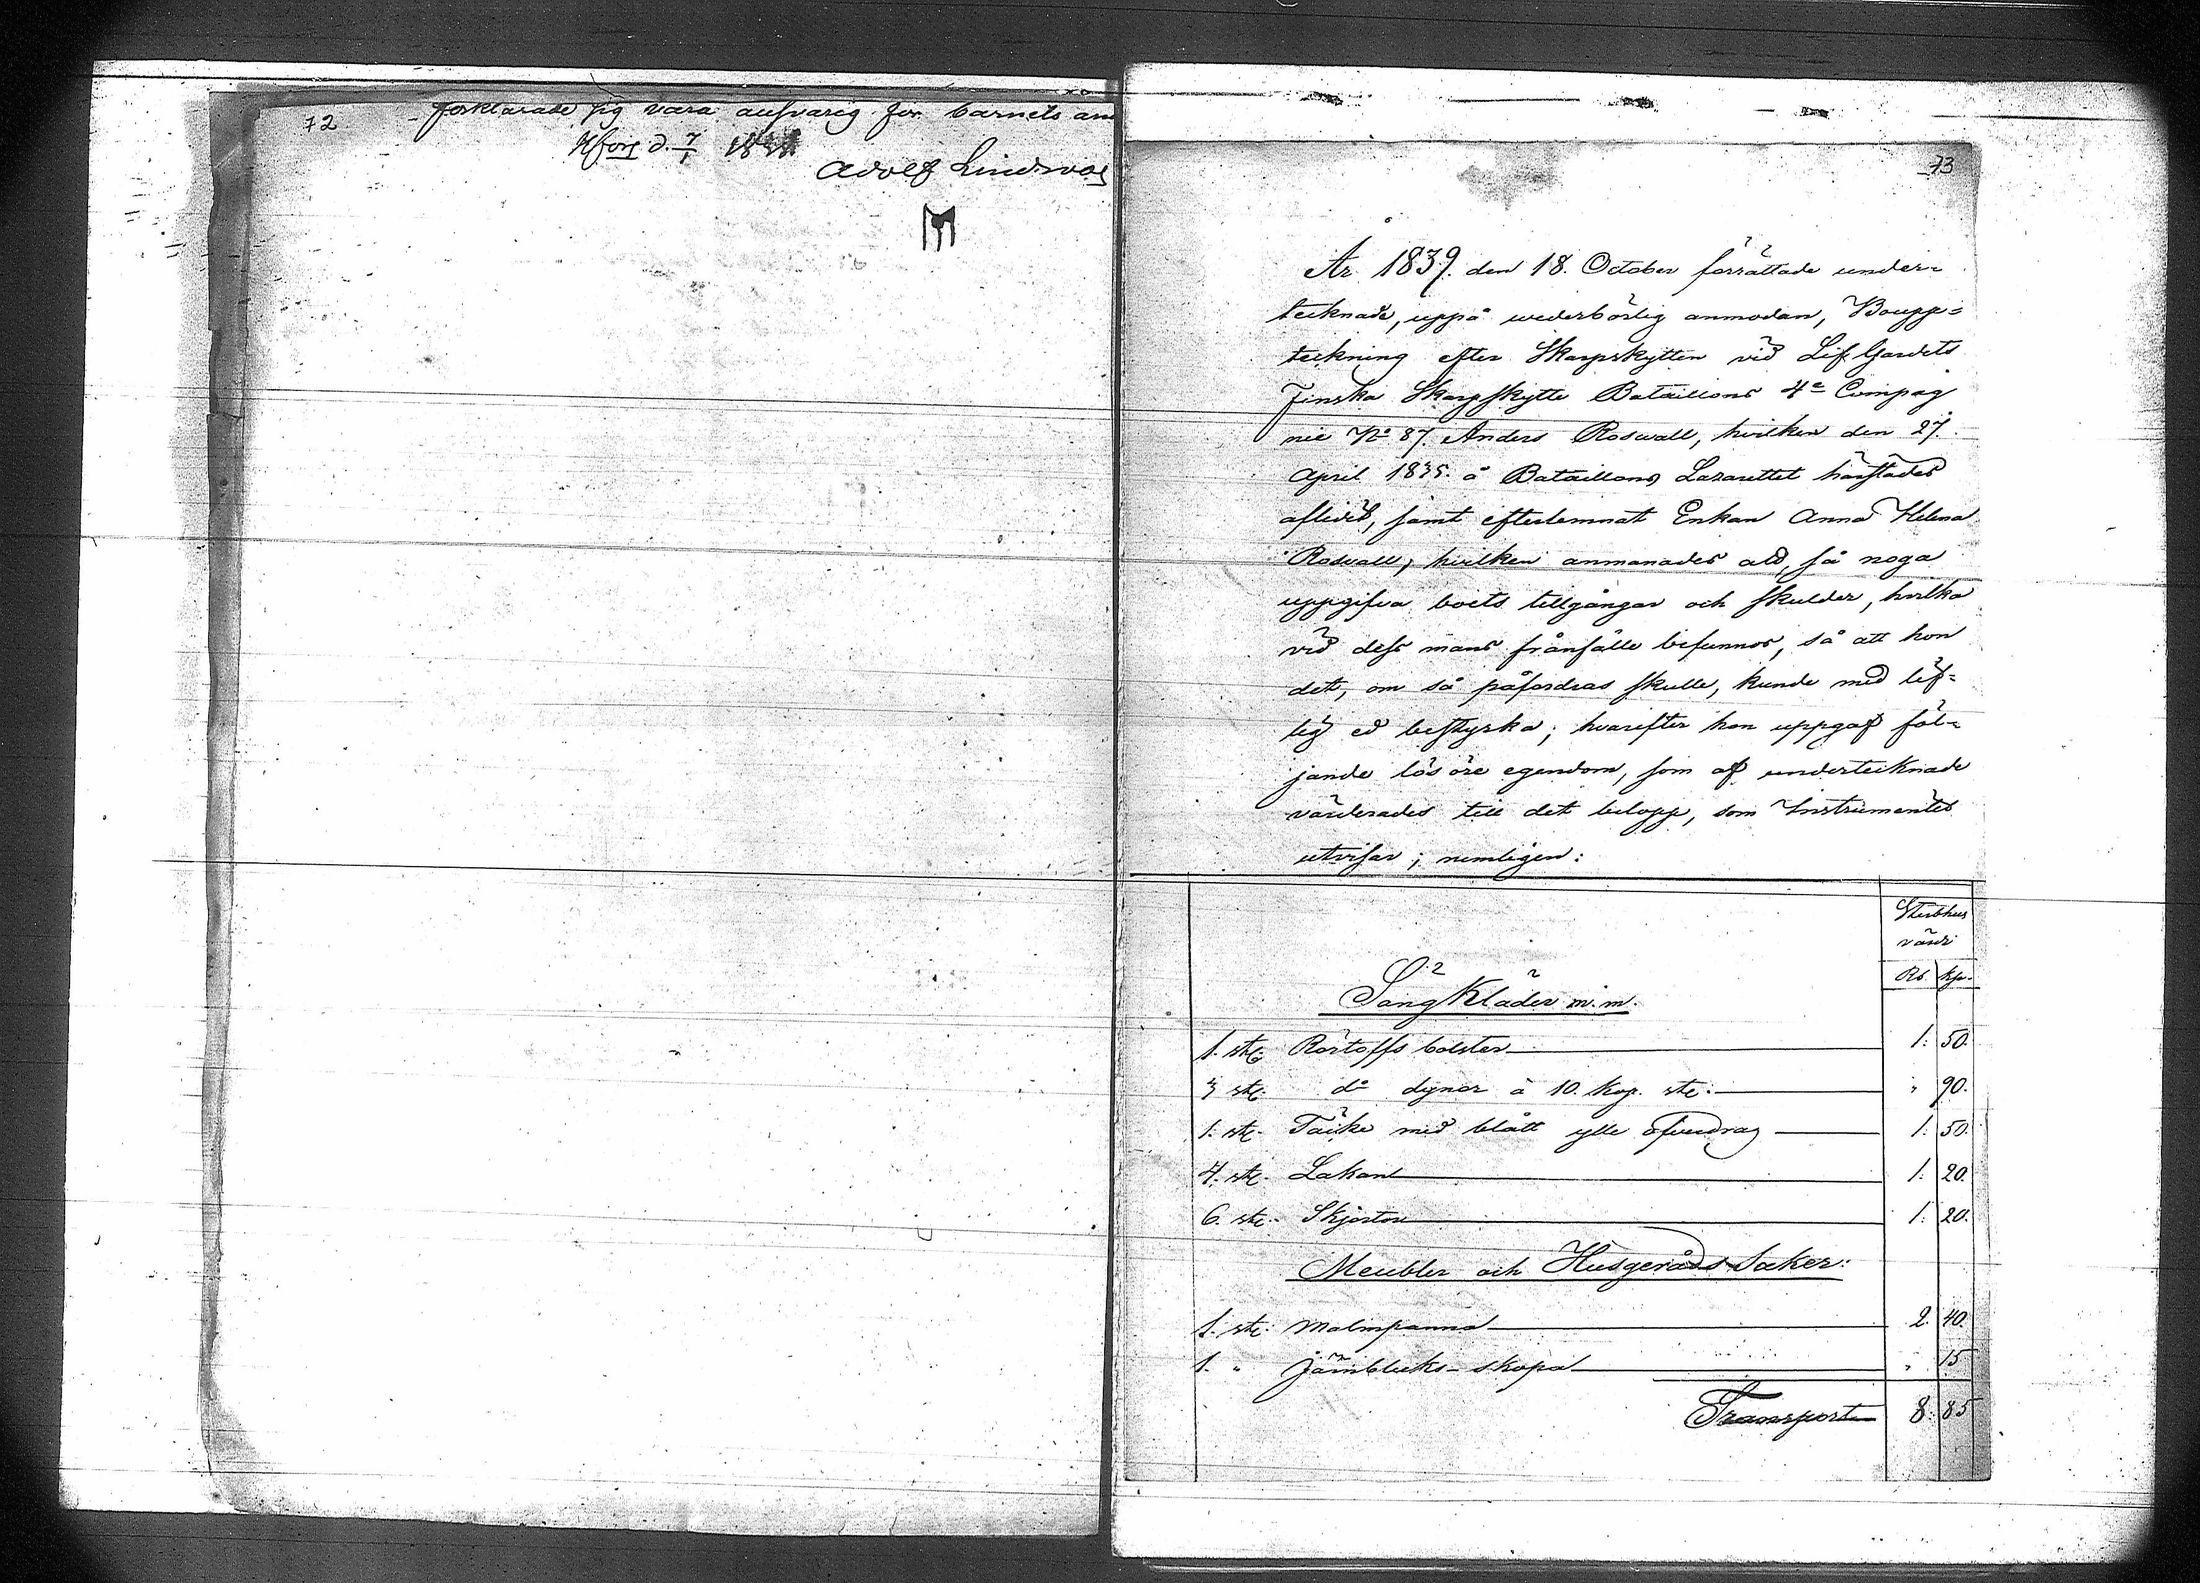 72
förklarade sig vara ansvarig för barnets
Hfors d. 7/1
Adolf
73
År 1839. den 18. October förrättade under-
tecknade, uppå wederbörlig anmodan, Boupp-
teckning efter Skarpskytten vid Lif Gardets
Finska Skarpskytte Bataillons 4e Compag
nie No 87. Anders Roswall, hvilken den 27.
April 1835. å Bataillons Lazarettet härstädes
aflidit, samt efterlemnat Enkan Anna Helena
Rosvall, hvilken anmanades att, så noga
uppgifva boets tillgångar och skulder, hvilka
vid dess mans frånfälle befunnos, så att hon
det, om så påfordras skulle, kunde med lif-
lig ed bestyrka; hvarefter hon uppgaf föl-
jande lösöre egendom, som af undertecknade
värderades till det belopp, som Instrumentet
utvisar; nemligen:
Sterbhus
värde
Rb. kp.
Säng Kläder m.m.
1. stc. bolster 1. 50.
3 stc. do dynor à 10. kop. stc: " 90.
1. stc. Täcke med blått ylle öfverdrag 1. 50.
4. stc. Lakan 1. 20.
6. stc. Skjortor 1. 20.
Meubler och Husgeråds Saker:
1. stc: Malmpanna 2. 40.
1. " Järnblecks-skopa " 15
Transport 8. 85